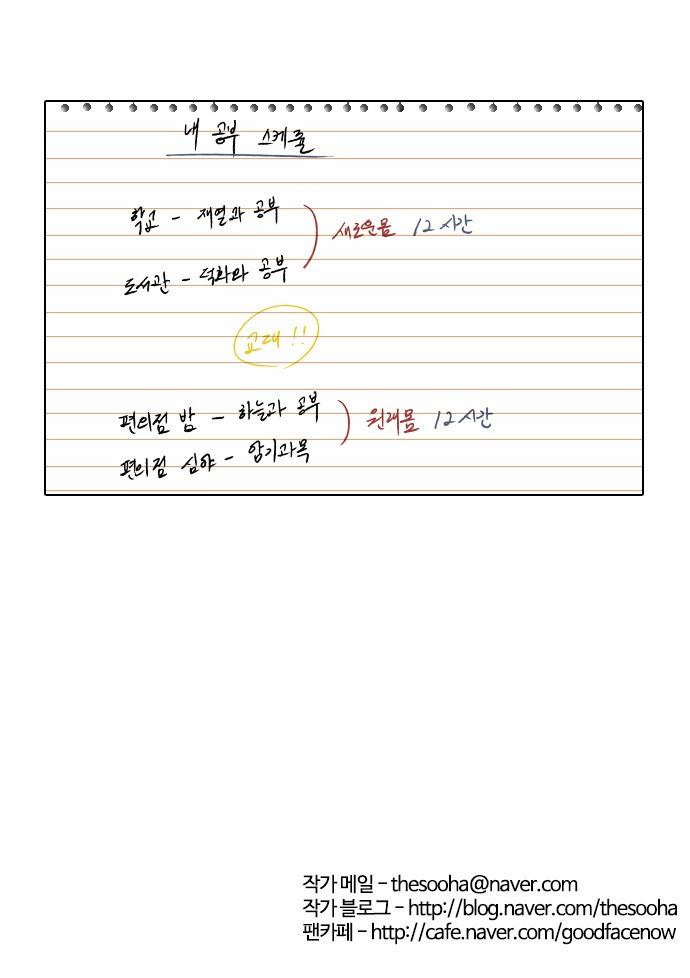 내 공부 스케줄
학교 - 재열과 공부
새로운몸 12시간
도서관 - 덕화와 공부
교대!!
편의점 밤 - 하늘과 공부
원래몸 12시간
편의점 심야 - 암기과목
작가 메일 - thesooha@naver.com
작가 블로그 - http://blog.naver.com/thesooha
팬카페 - http://cafe.naver.com/goodfacenow